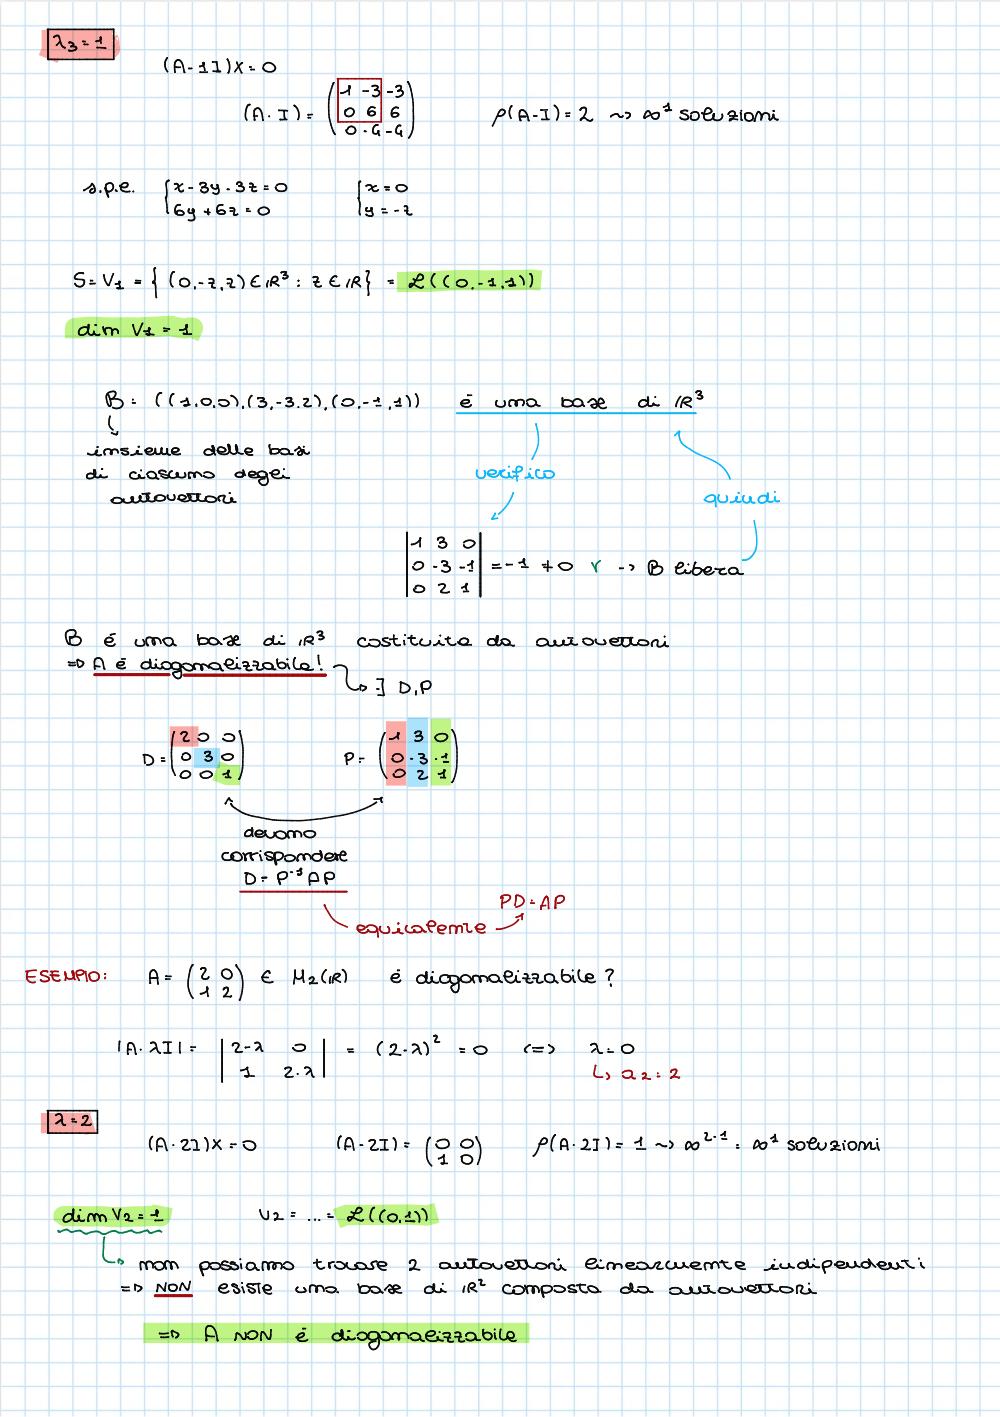 λ3 = 1
(A-1I)X = 0
(A-I) = (1 -3 -3
0 6 6
0 -4 -4)
ρ(A-I) = 2 ~> ∞¹ soluzioni
s.p.e. { x-3y-3z = 0 { x = 0
6y+6z = 0 y = -z
S = V1 = { (0,-z,z) ∈ ℝ³ : z ∈ ℝ } = ℒ((0,-1,1))
dim V1 = 1
B = ((1,0,0),(3,-3,2),(0,-1,1)) è una base di ℝ³
insieme delle basi
di ciascuno degli
autovettori
verifico
quindi
|1 3 0|
|0 -3 -1| = -1 ≠ 0 v -> B libera
|0 2 1|
B è una base di ℝ³ costituita da autovettori
=> A è diagonalizzabile!
∃ D,P
D = (2 0 0
0 3 0
0 0 1)
P = (1 3 0
0 -3 -1
0 2 1)
devono
corrispondere
D = P⁻¹AP
PD = AP
equivalente
ESEMPIO: A = (2 0
1 2) ∈ M2(ℝ) è diagonalizzabile?
|A-λI| = |2-λ 0
1 2-λ| = (2-λ)² = 0 <=> λ = 0
↳ a2 = 2
λ = 2
(A-2I)X = 0 (A-2I) = (0 0
1 0) ρ(A-2I) = 1 ~> ∞²⁻¹ = ∞¹ soluzioni
dim V2 = 1 V2 = ... = ℒ((0,1))
non possiamo trovare 2 autovettori linearmente indipendenti
=> NON esiste una base di ℝ² composta da autovettori
=> A NON è diagonalizzabile